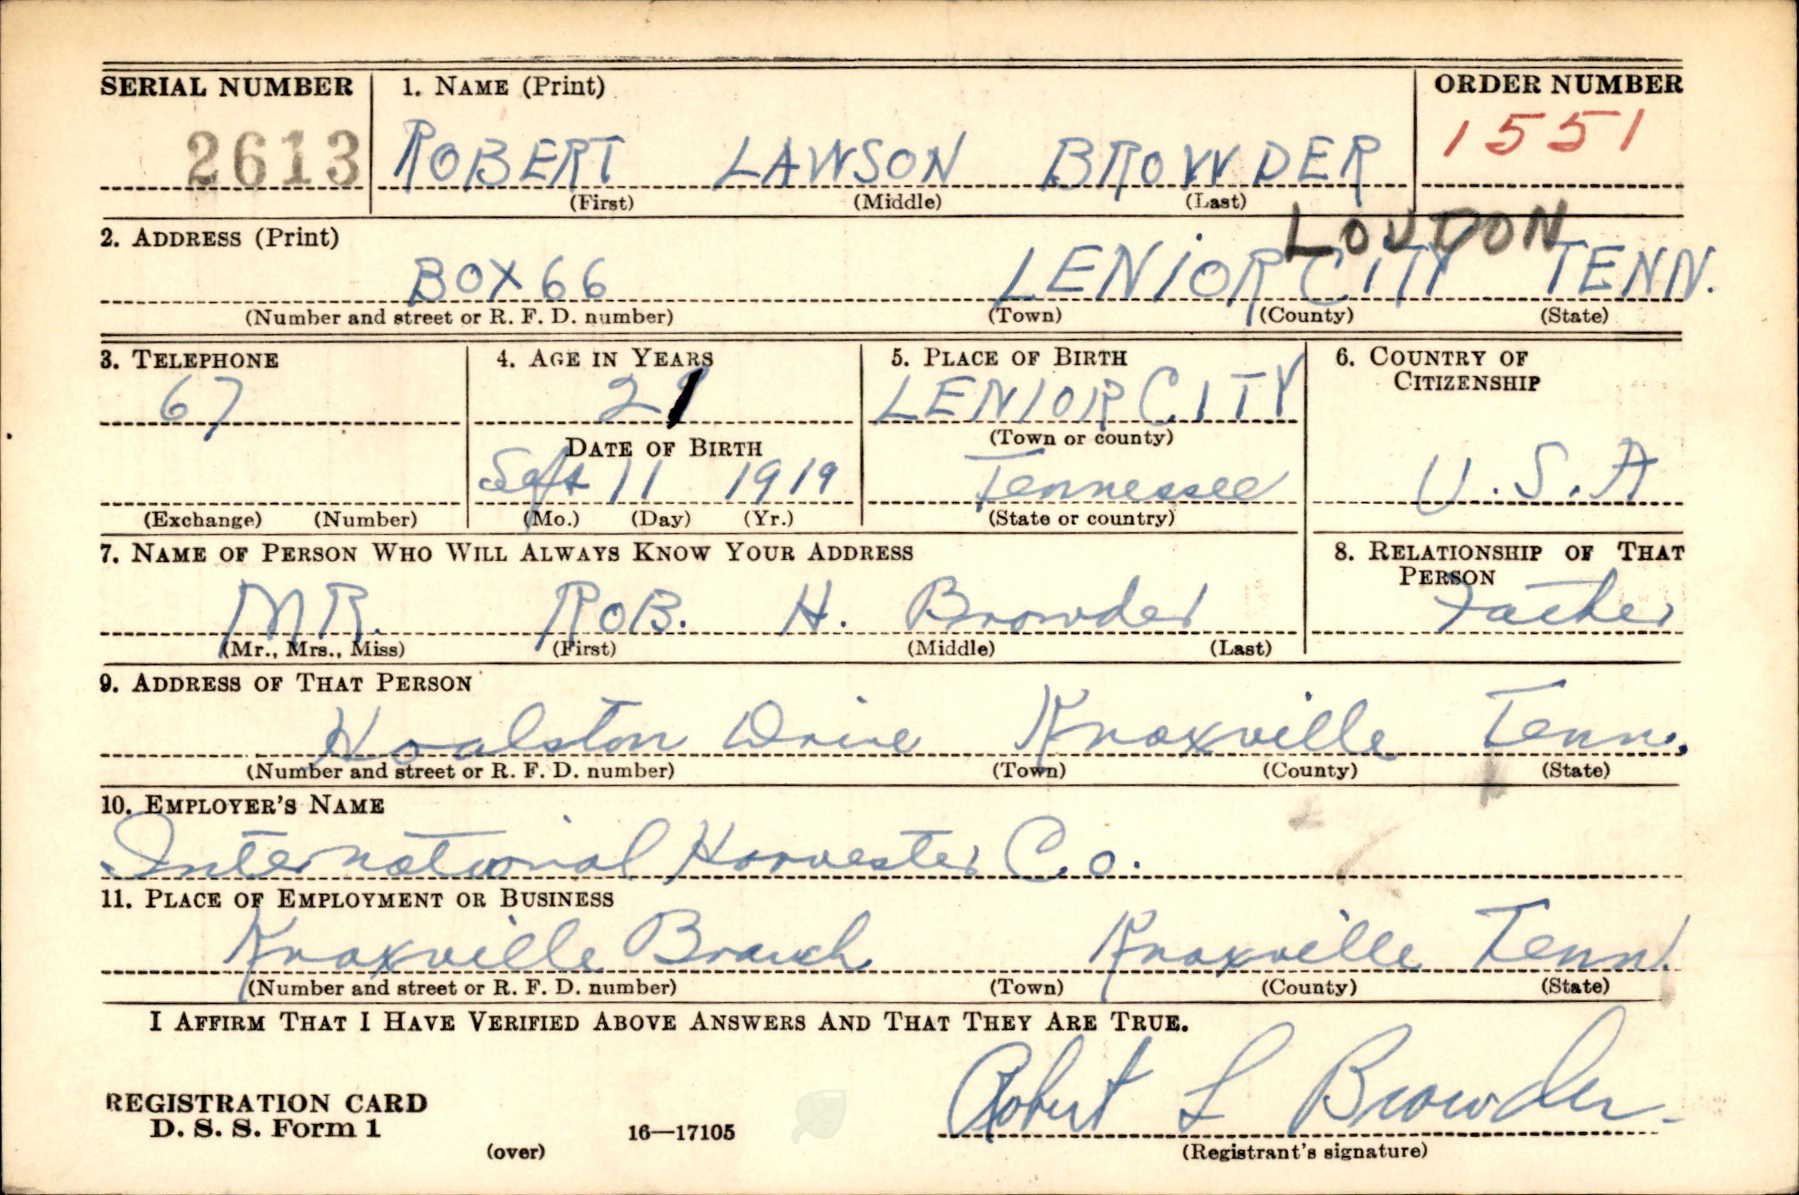 SERIAL NUMBER 1. NAME (Print) ORDER NUMBER
2613 ROBERT LAWSON BROWDER 1551
(First) (Middle) (Last)
LOUDON
2. ADDRESS (Print)
BOX 66 LENIOR CITY TENN.
(Number and street or R. F. D. number) (Town) (County) (State)
3. TELEPHONE 4. AGE IN YEARS 5. PLACE OF BIRTH 6. COUNTRY OF CITIZENSHIP
67 21 LENIOR CITY
(Town or county)
DATE OF BIRTH
Sept 11 1919 Tennessee U.S.A
(Exchange) (Number) (Mo.) (Day) (Yr.) (State or country)
7. NAME OF PERSON WHO WILL ALWAYS KNOW YOUR ADDRESS 8. RELATIONSHIP OF THAT PERSON
MR. ROB. H. Browder Father
(Mr., Mrs., Miss) (First) (Middle) (Last)
9. ADDRESS OF THAT PERSON
Hoalston Drive Knoxville Tenn.
(Number and street or R. F. D. number) (Town) (County) (State)
10. EMPLOYER'S NAME
International Harvester Co.
11. PLACE OF EMPLOYMENT OR BUSINESS
Knoxville Branch Knoxville Tenn.
(Number and street or R. F. D. number) (Town) (County) (State)
I AFFIRM THAT I HAVE VERIFIED ABOVE ANSWERS AND THAT THEY ARE TRUE.
Robert L Browder
REGISTRATION CARD
D. S. S. Form 1
(over) 16—17105 (Registrant's signature)